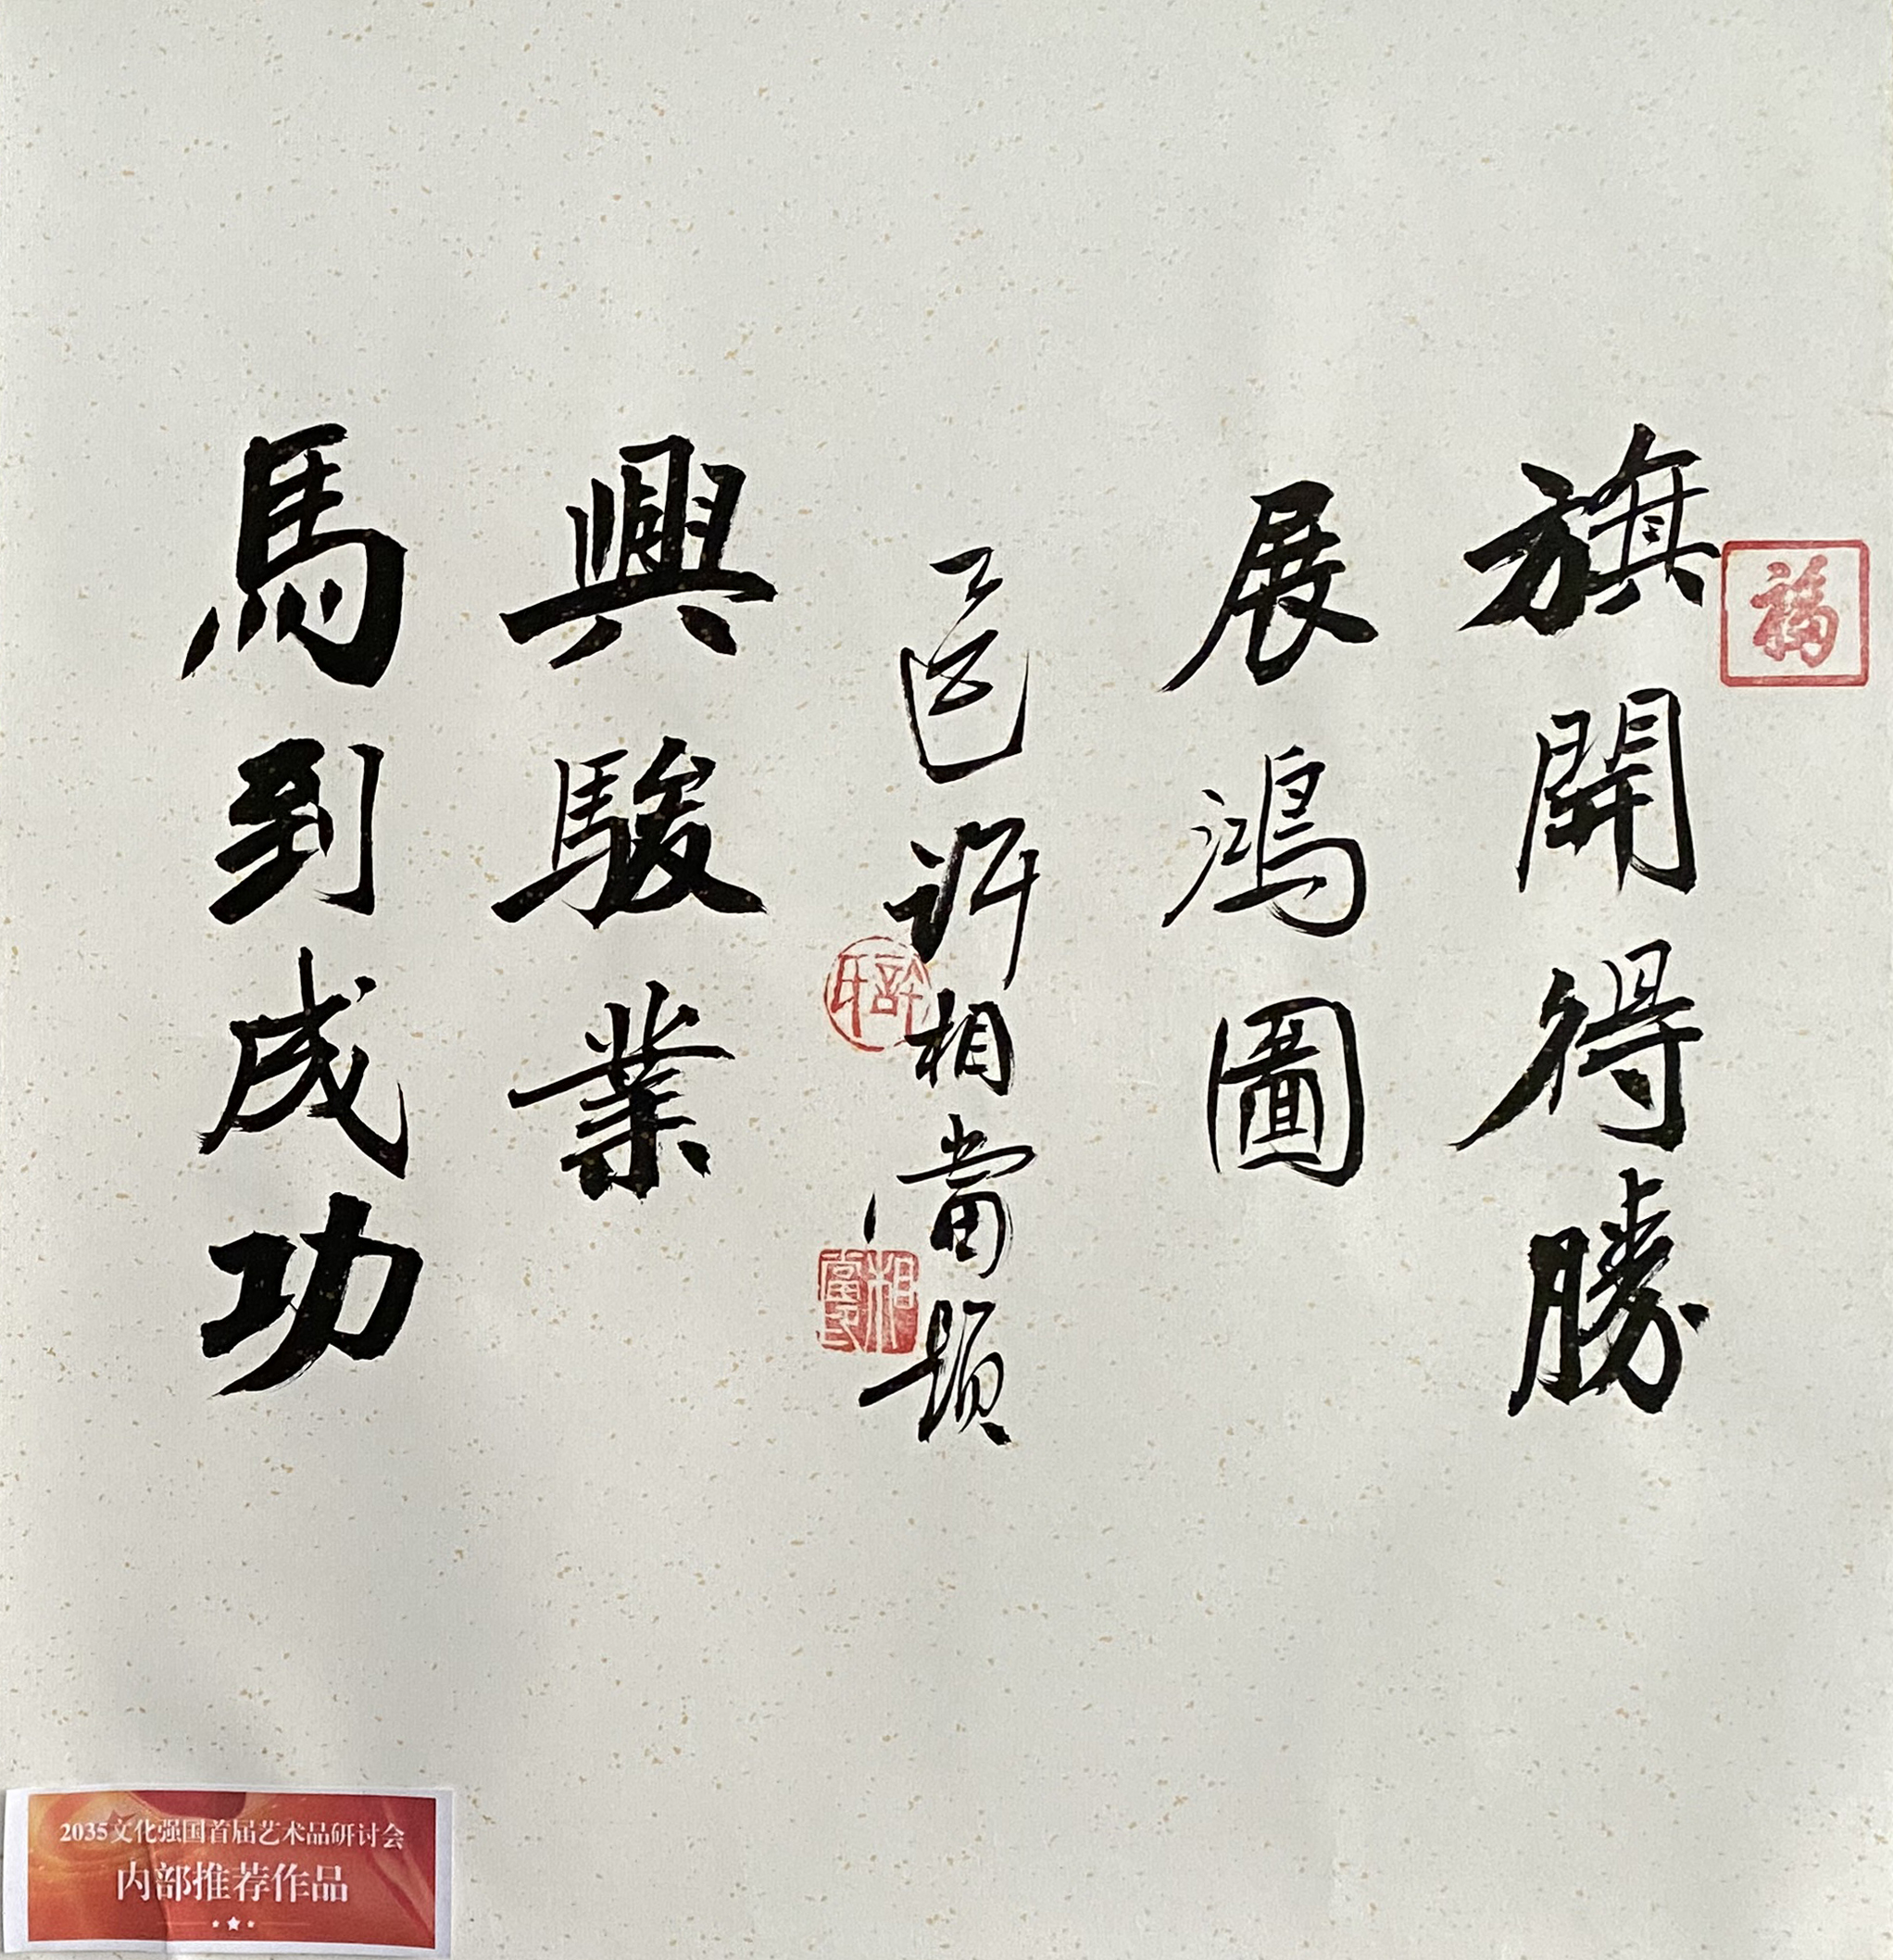 福
旗開得勝
展鴻圖
乙巳許相題
許印
興駿業
馬到成功
2035文化强国首届艺术品研讨会
内部推荐作品